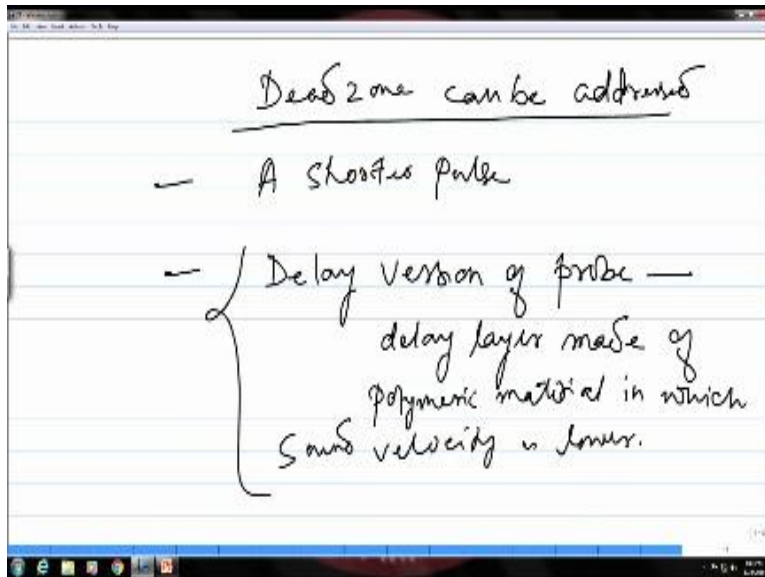 Dead zone can be addressed
— A Shorter Pulse
— Delay Version of probe —
delay layer made of
polymeric material in which
Sound velocity is lower.